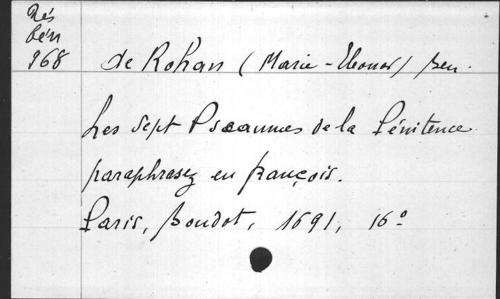 Rés
bén
968
de Rohan (Marie-Eleonor)
Les sept Pseaumes de la Pénitence
paraphrasez en françois.
Paris, Boudot, 1691, 16°